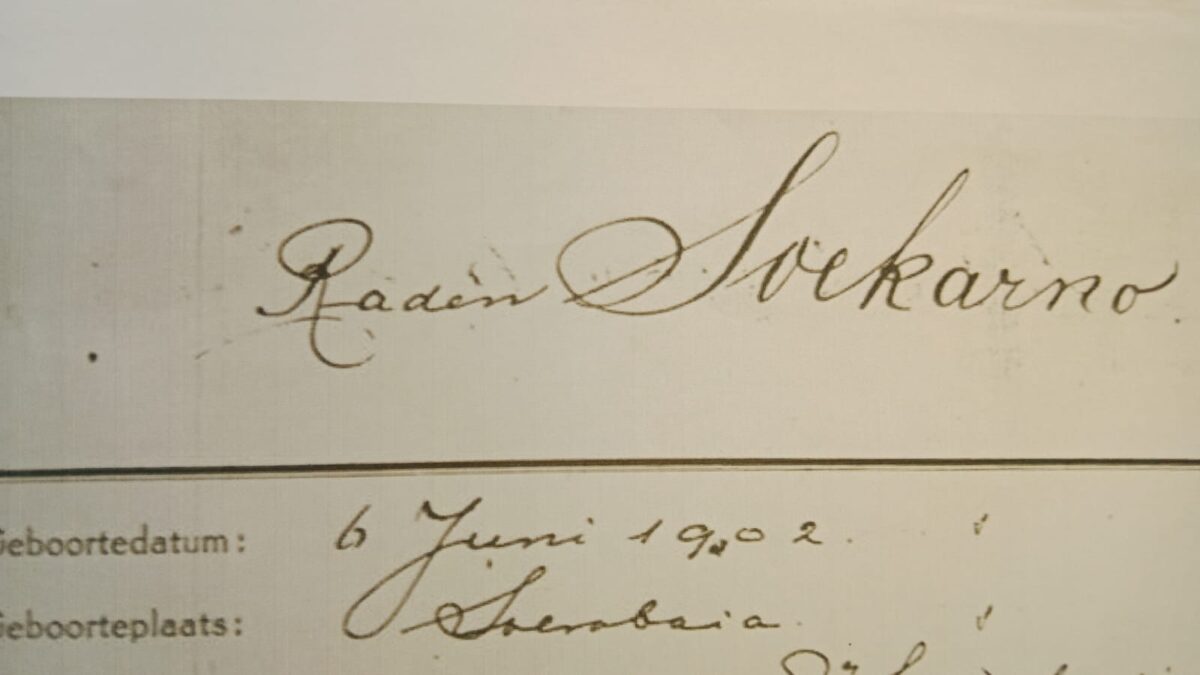 Raden Soekarno.
Geboortedatum: 6 Juni 1902.
Geboorteplaats: Soerabaia.